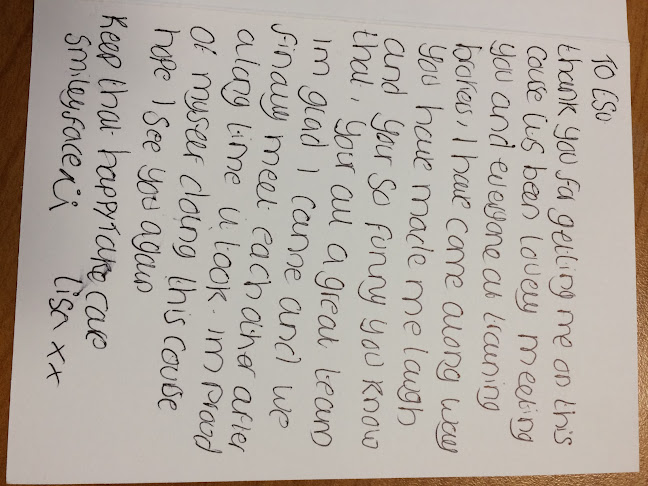 To Eso
thank you for getting me on this
cause its been lovely meeting
you and everyone at training
brokers, I have come along way
you have made me laugh
and your so funny you know
that, your all a great team
im glad I came and we
finally meet each other after
along time it took. im proud
of myself doing this course
hope I see you again
Keep that happy take care
Smiley face :)
Lisa xx